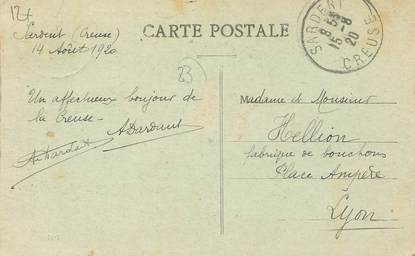 CARTE POSTALE
Sardent (Creuse)
14 Août 1920
SARDENT
15 - 8
20
CREUSE
23
Un affectueux bonjour de
la Creuse -
ADardant
Madame et Monsieur
Hellion
fabrique de bouchons
Place Ampère
Lyon